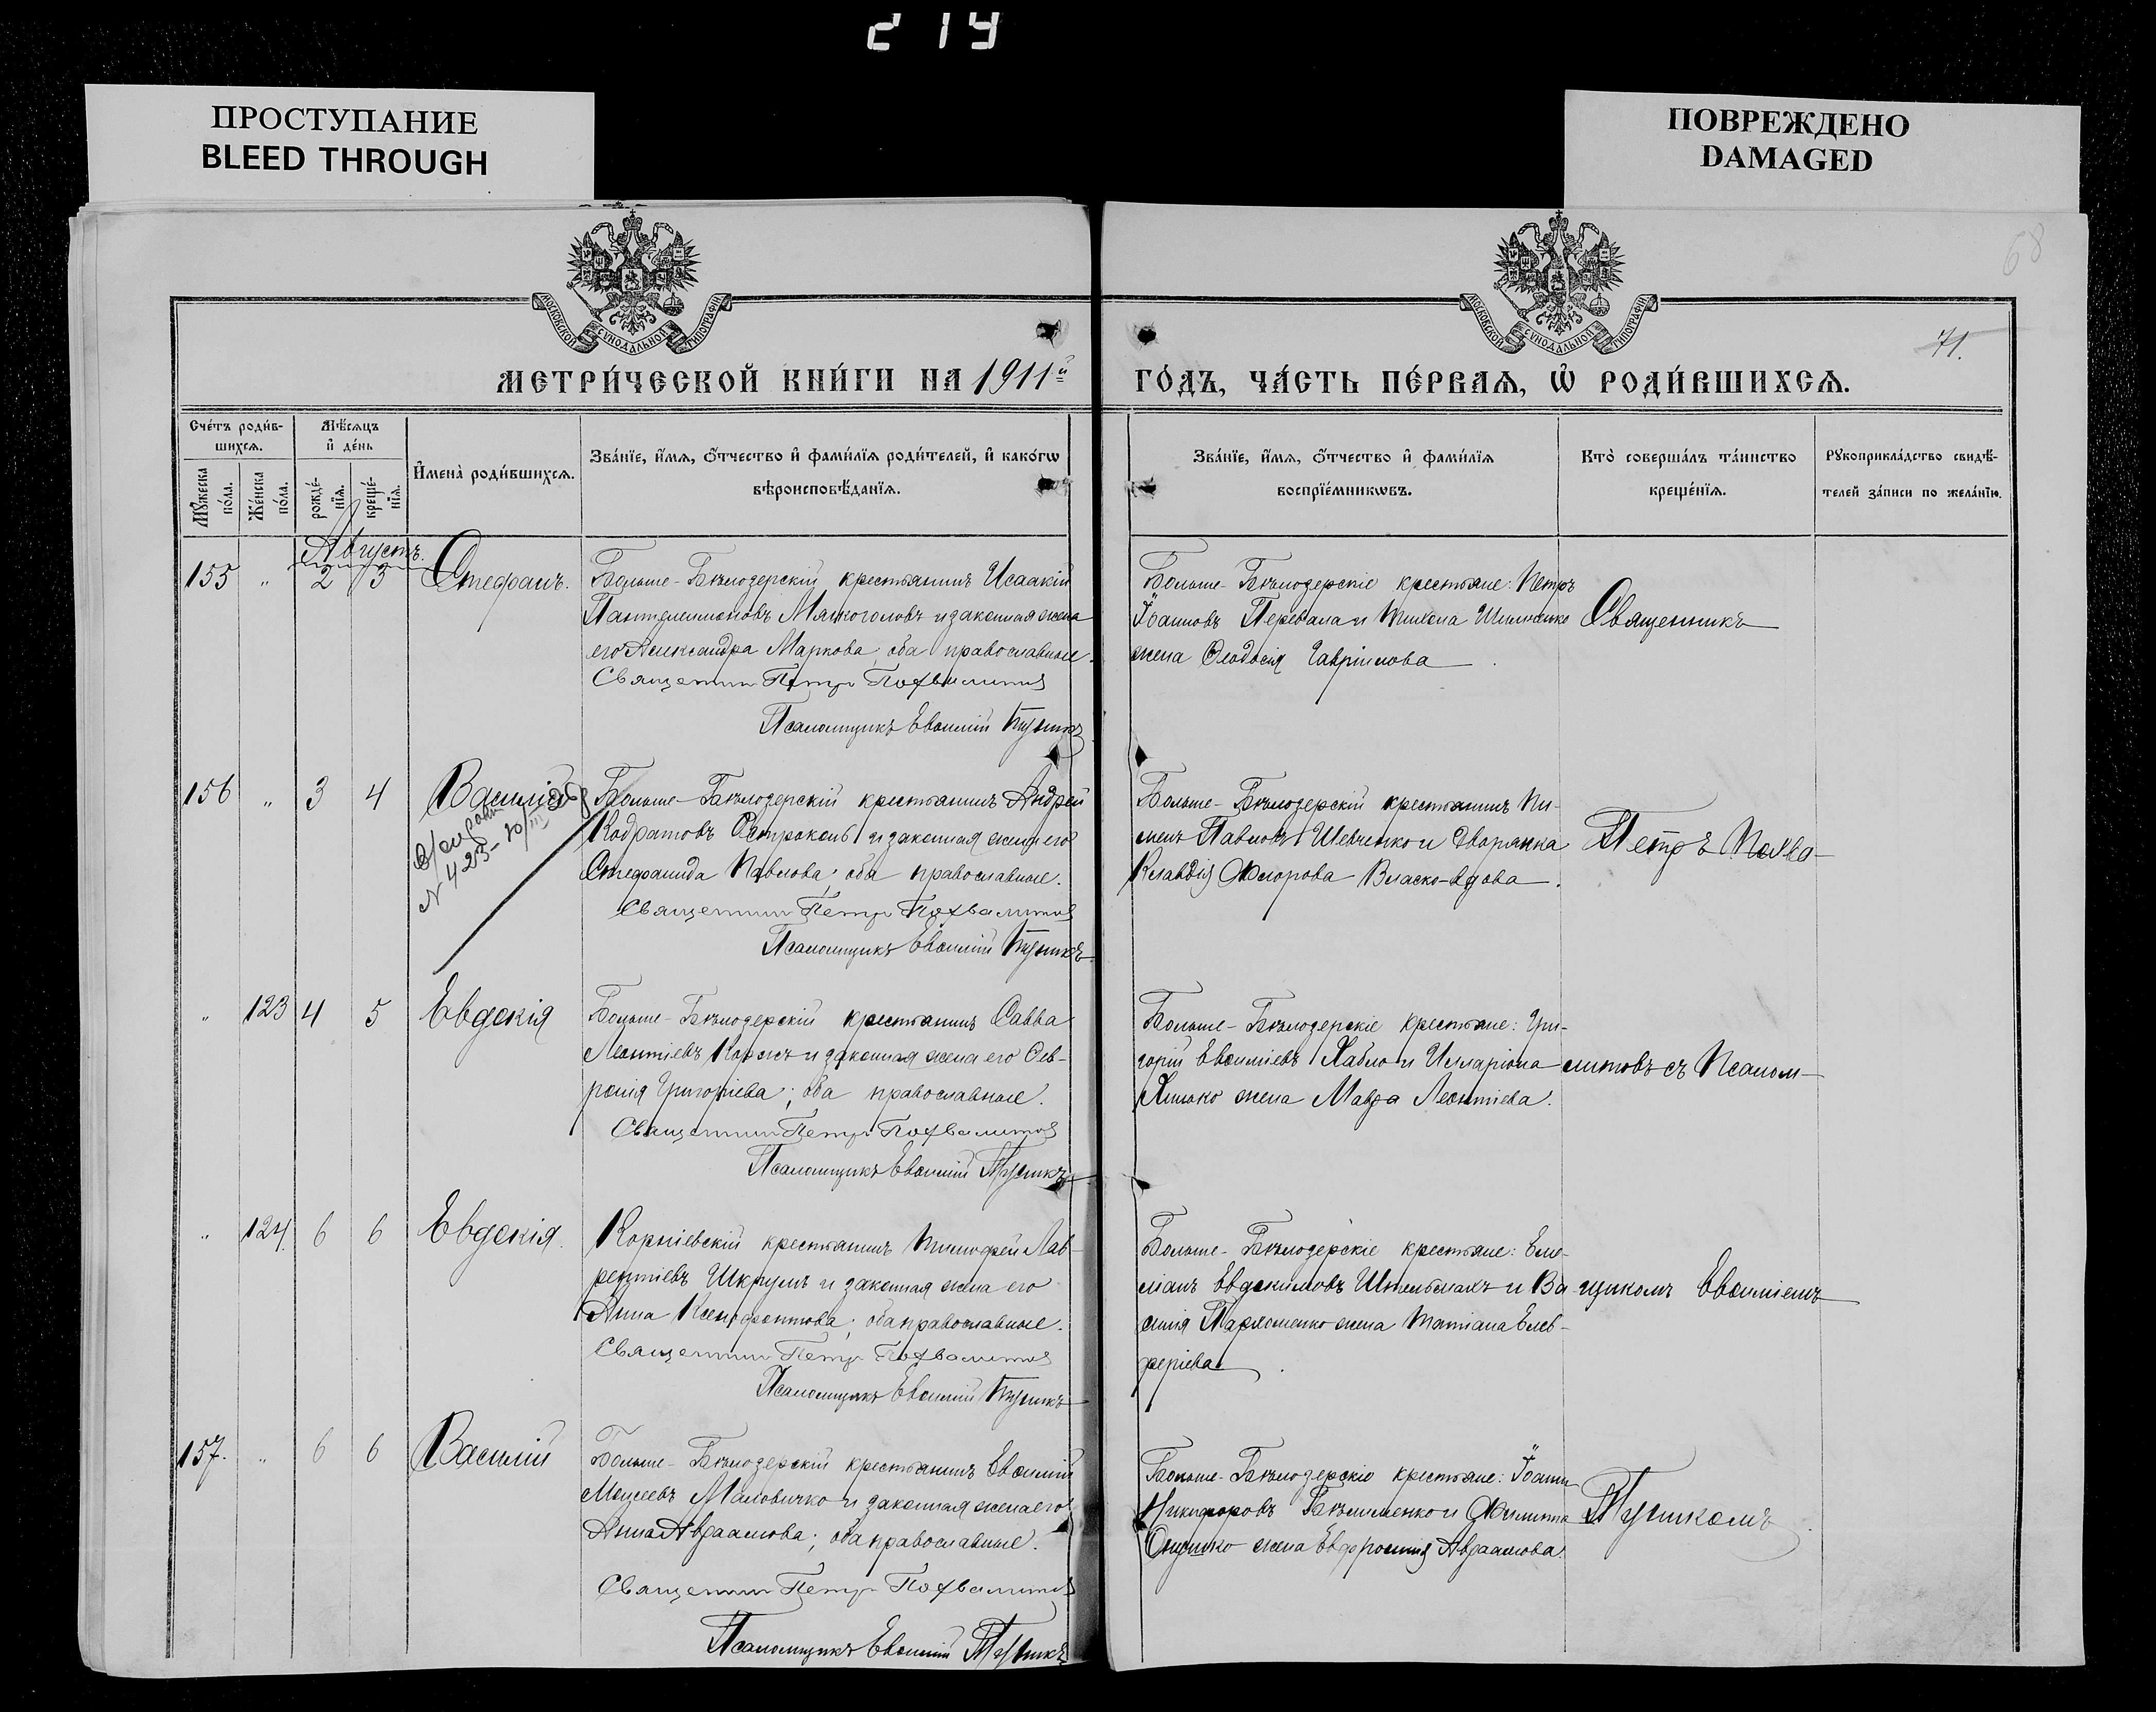 219
ПРОСТУПАНИЕ
BLEED THROUGH
ПОВРЕЖДЕНО
DAMAGED
68
МОСКОВСКОЙ СѴНОДАЛЬНОЙ ТИПОГРАФІИ
МОСКОВСКОЙ СѴНОДАЛЬНОЙ ТИПОГРАФІИ
71.
МЕТРИ́ЧЕСКОЙ КНИ́ГИ НА 1911й
ГО́ДЪ, ЧА́СТЬ ПЕ́РВАѦ, Ѡ҆ РОДИ́ВШИХСѦ.
Сче́тъ роди́в-
шихсѧ.
Мѣ́сѧцъ
и҆ де́нь
И҆мена̀ роди́вшихсѧ.
Зва́нїе, и҆́мѧ, ѻ҆́тчество и҆ фами́лїѧ роди́телей, и҆ како́гѡ
вѣроисповѣ́данїѧ.
Мꙋ́жеска по́ла.
Же́нска по́ла.
рожде́-нїѧ.
креще́-нїѧ.
Зва́нїе, и҆́мѧ, ѻ҆́тчество и҆ фами́лїѧ
воспрїе́мникѡвъ.
Кто̀ соверша́лъ та́инство
креще́нїѧ.
Рꙋкоприкла́дство свидѣ́-
телей за́писи по жела́нїю.
Августъ.
155 " 2 3 Стефанъ. Больше-Бѣлозерскій крестьянинъ Исаакій
Пантелеимоновъ Мягкоголовъ и законная жена
его Александра Маркова, оба православные.
Священник Петр Похвалитов
Псаломщикъ Евѳимій Пугникъ
Больше-Бѣлозерскіе крестьяне: Петръ
Іоанновъ Перевала и
жена Ѳеодосія Гавріилова.
Священникъ
156 " 3 4 Василій Больше-Бѣлозерскій крестьянинъ Андрей
N 423-10/III
Кодратовъ и законная жена его
Стефанида Павлова; оба православные.
Священник Петр Похвалитов
Псаломщикъ Евѳимій
Больше-Бѣлозерскій крестьянинъ Пи-
менъ Павловъ Шевченко и дворянка
Клавдія Флорова Власко-вдова.
Петръ Похва-
" 123 4 5 Евдокія Больше-Бѣлозерскій крестьянинъ Савва
Леонтіевъ Коржъ и законная жена его Фев-
ронія Григоріева; оба православные.
Священник Петр Похвалитов
Псаломщикъ Евѳимій
Больше-Бѣлозерскіе крестьяне: Гри-
горій Евѳиміевъ Хабло и Илларіона
жена Мавра Леонтіева.
литовъ съ Псалом-
" 124 6 6 Евдокія. Корніевскій крестьянинъ Тимофей Лав-
рентіевъ Шкрумъ и законная жена его
Анна Ксенофонтова; оба православные.
Священник Петр Похвалитов
Псаломщикъ Евѳимій
Больше-Бѣлозерскіе крестьяне: Еме-
ліанъ Евдокимовъ и Ва-
силія Пархоменко жена Татіана Елев-
феріева.
щикомъ Евѳиміемъ
157. " 6 6 Василій Больше-Бѣлозерскій крестьянинъ Евѳимій
Моѵсеевъ Маловичко и законная жена его
Анна Авраамова; оба православные.
Священник Петр Похвалитов
Псаломщикъ Евѳимій
Больше-Бѣлозерскіе крестьяне: Іоаннъ
Никифоровъ и Филиппа
Онушко жена Евфросинія Авраамова.